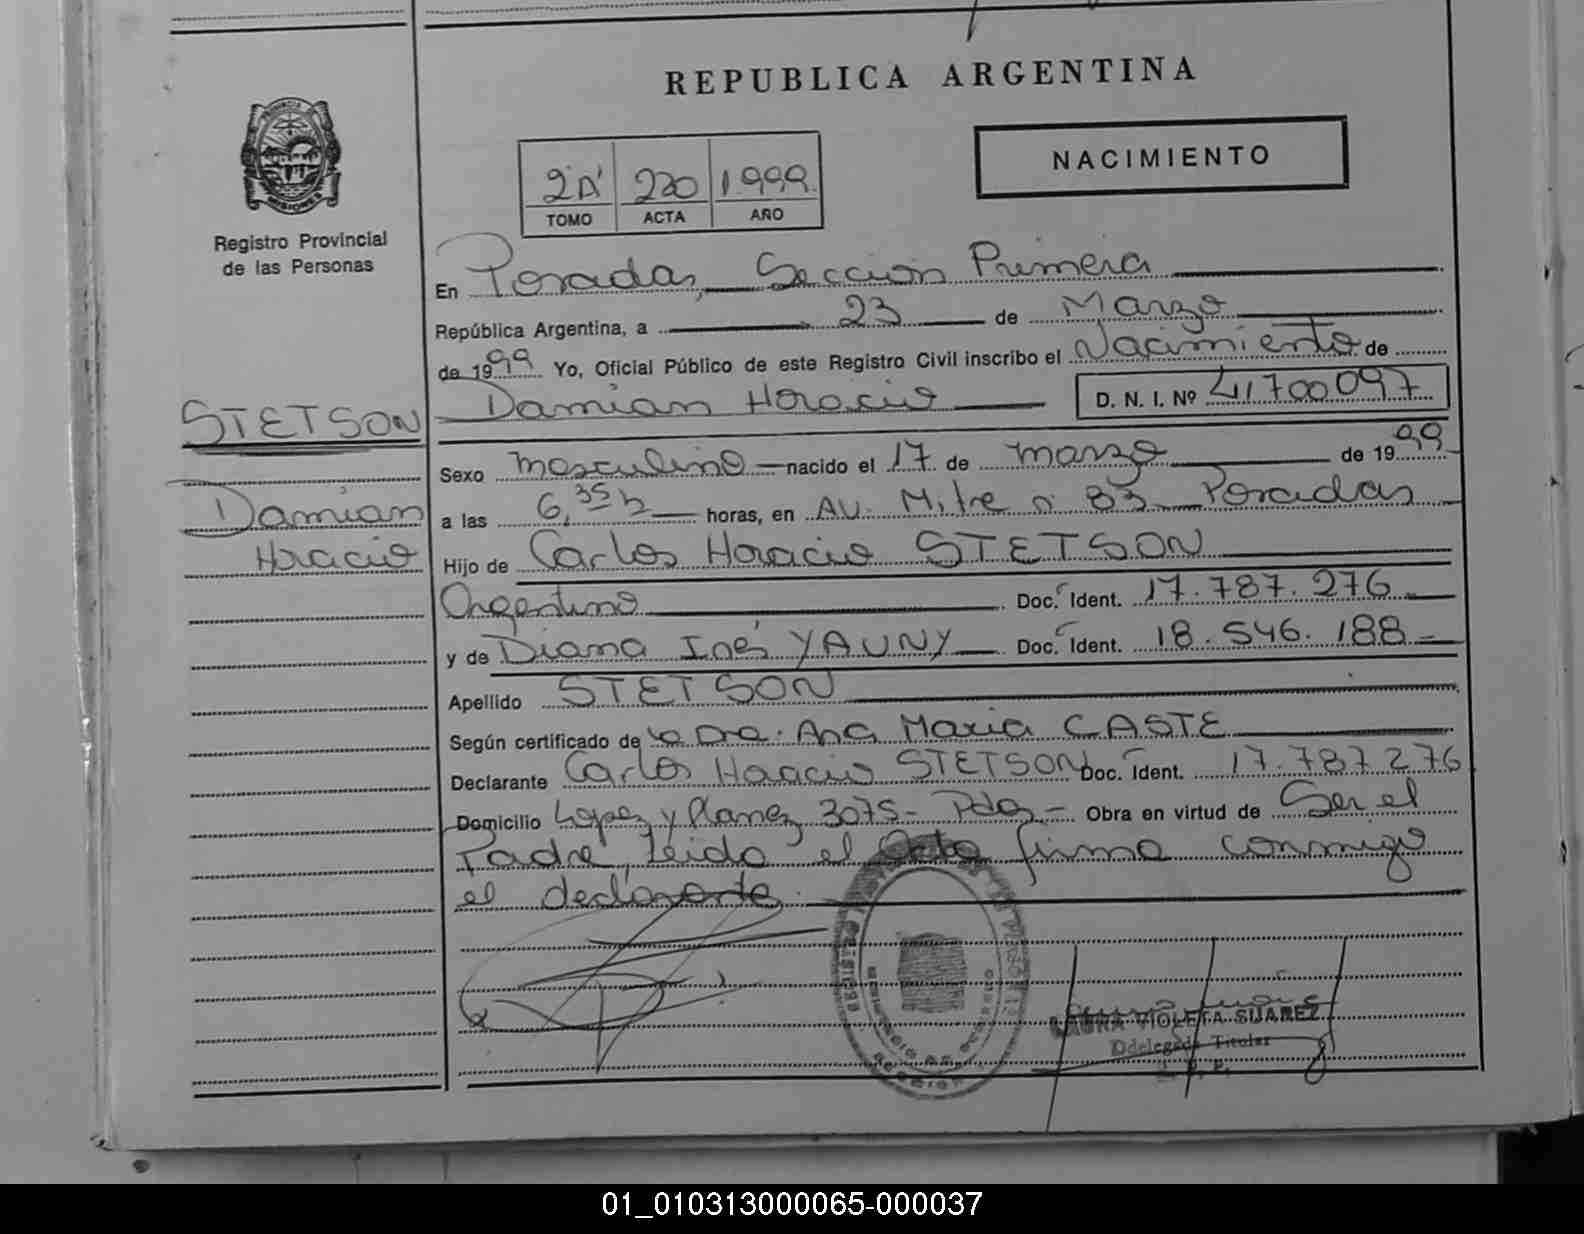 REPUBLICA ARGENTINA
NACIMIENTO
2"A" 220 1999
TOMO ACTA AÑO
PROVINCIA DE MISIONES
Registro Provincial
de las Personas
En Posadas, Sección Primera
República Argentina, a 23 de Marzo
de 1999 Yo, Oficial Público de este Registro Civil inscribo el Nacimiento de
Damian Horacio D. N. I. Nº 41700097
STETSON
Damian
Horacio
Sexo masculino nacido el 17 de marzo de 1999
a las 6,35 h horas, en Av. Mitre n° 83 Posadas
Hijo de Carlos Horacio STETSON
Argentino Doc. Ident. 17.787.276
y de Diana Inés YAUNY Doc. Ident. 18.546.188
Apellido STETSON
Según certificado de la Dra. Ana Maria CASTE
Declarante Carlos Horacio STETSON Doc. Ident. 17.787.276
Domicilio Lopez y Planez 3075 - Pdas - Obra en virtud de Ser el
Padre, leido el Acta firma conmigo
el declarante.
LAURA VIOLETA SUAREZ
Ddelegada Titular
01_010313000065-000037